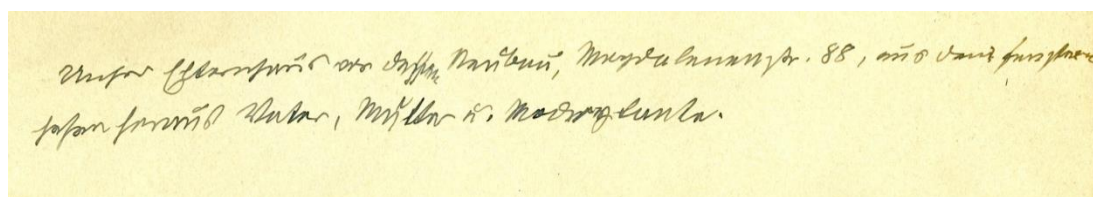 Unser Elternhaus vor dessen Neubau, Magdalenenstr. 88, aus dem Fenster
sehen heraus Vater, Mutter u.